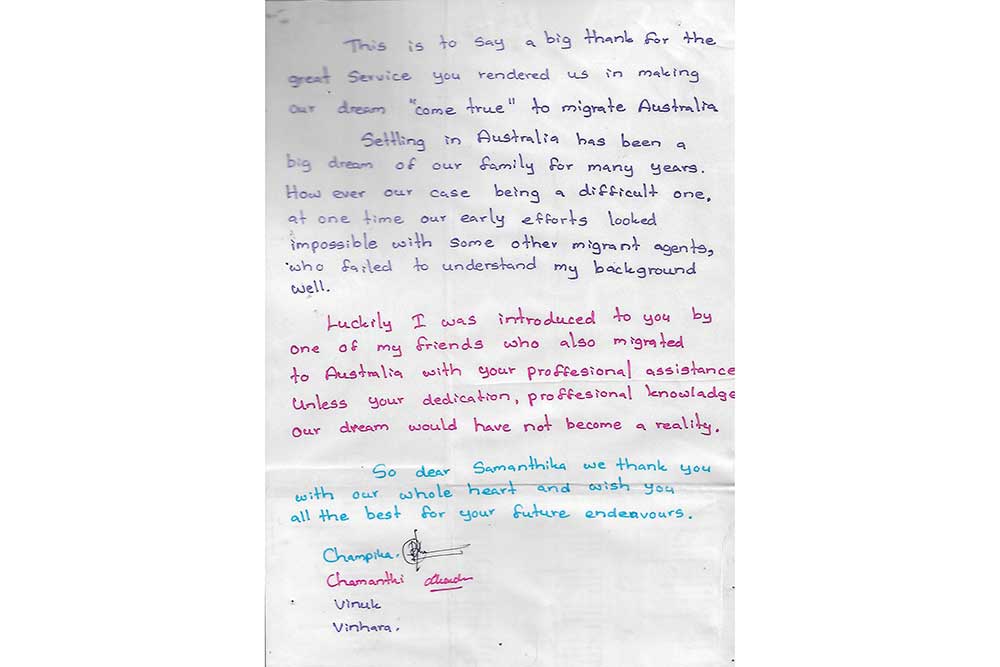 This is to say a big thank for the
great Service you rendered us in making
our dream "come true" to migrate Australia
Settling in Australia has been a
big dream of our family for many years.
How ever our case being a difficult one,
at one time our early efforts looked
impossible with some other migrant agents,
who failed to understand my background
well.
Luckily I was introduced to you by
one of my friends who also migrated
to Australia with your proffesional assistance
Unless your dedication, proffesional knowladge
our dream would have not become a reality.
So dear Samanthika we thank you
with our whole heart and wish you
all the best for your future endeavours.
Champika.
Chamanthi
Vinuk
Vinhara.